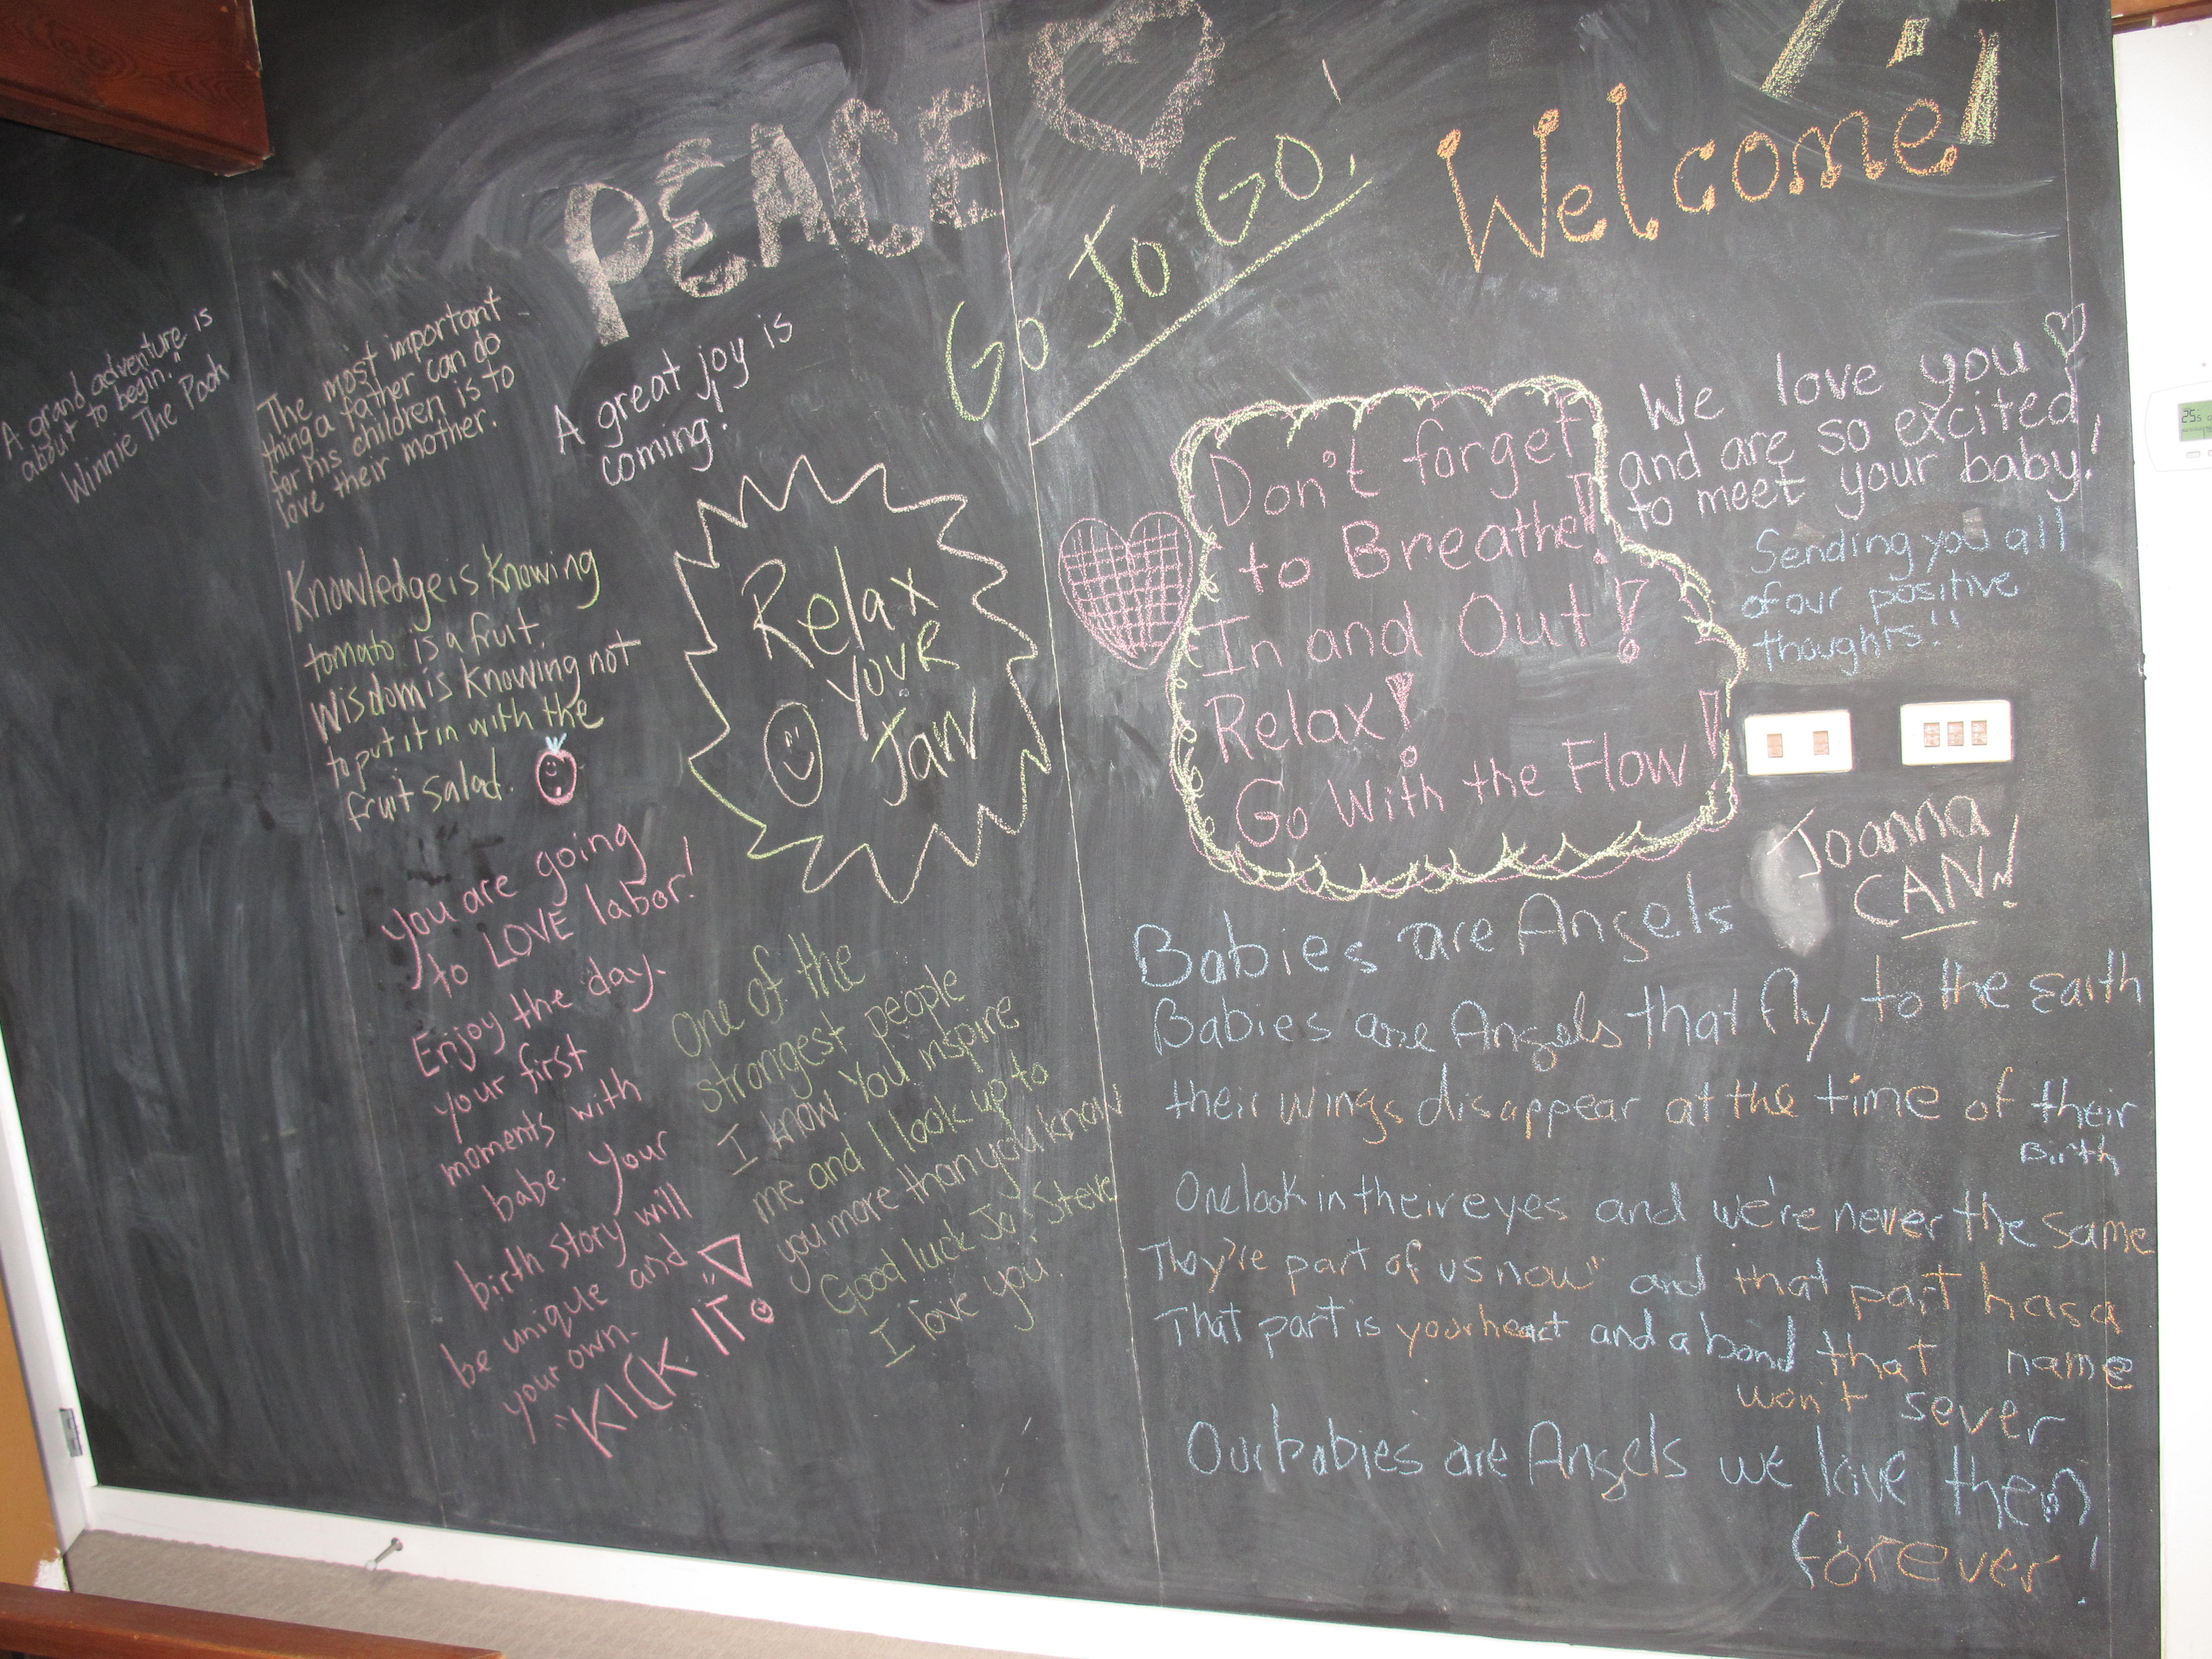 PEACE
Go Jo Go!
Welcome
A grand adventure is
about to begin."
Winnie The Pooh
The most important
thing a father can do
for his children is to
love their mother.
A great joy is
coming!
Knowledge is knowing
tomato is a fruit.
Wisdom is knowing not
to put it in with the
fruit salad.
Relax
YOUR
Jaw
Don't forget
to Breathe!
In and Out!
Relax!
Go With the Flow!
We love you
and are so excited
to meet your baby!
Sending you all
of our positive
thoughts!!
Joanna
CAN!
you are going
to LOVE labor!
Enjoy the day.
your first
moments with
babe. Your
birth story will
be unique and
your own.
"KICK IT"!
One of the
strongest people
I know. You inspire
me and I look up to
you more than you know
Good luck Jo! Steve
I love you!
Babies are Angels
Babies are Angels that fly to the Earth
their wings disappear at the time of their
Birth
One look in their eyes and we're never the same
They're part of us now" and that part has a
name
That part is your heart and a bond that
won't sever
Our babies are Angels we love them
forever!
25